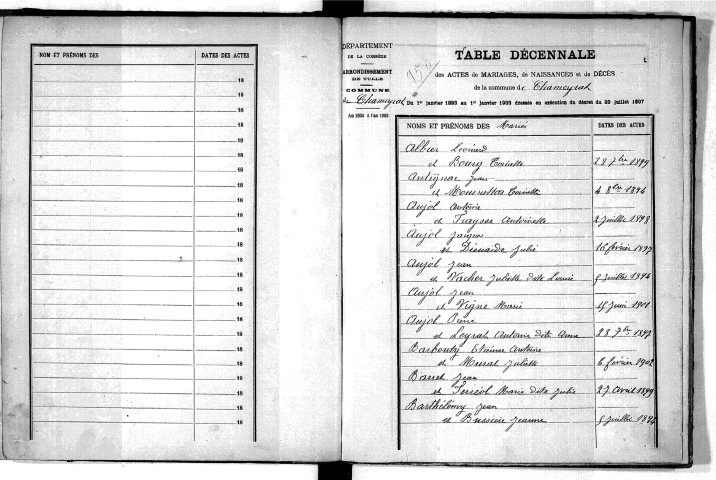 NOM ET PRÉNOMS DES
DATES DES ACTES
18
18
18
18
18
18
18
18
18
18
18
18
18
18
18
18
18
18
18
18
DÉPARTEMENT
DE LA CORRÈZE
ARRONDISSEMENT
DE TULLE
COMMUNE
de Chameyrat
An 1893 à l'an 1903
TABLE DÉCENNALE
1
des ACTES de MARIAGES, de NAISSANCES et de DÉCÈS
de la commune de Chameyrat
Du 1er janvier 1893 au 1er janvier 1903 dressée en exécution du décret du 20 juillet 1807
NOMS ET PRÉNOMS DES Mariés
DATES DES ACTES
Albier Léonard
et Boury Toinette 28 7bre 1899
Antignac Jean
et Toinette 4 8bre 1894
Aujol Antoine
et Trayssac Antoinette 2 juillet 1898
Aujol Jacques
et Julie 16 février 1897
Aujol Jean
et Vacher Juliette dite Louise 5 juillet 1894
Aujol Jean
et Vigne Marie 15 juin 1901
Aujol Pierre
et Leyrat Antonia dite Anna 23 7bre 1893
Barbouty Etienne Antoine
et Murat Juliette 6 février 1902
Barret Jean
et Terriol Marie dite Julie 27 avril 1899
Barthélémy Jean
et Bussière Jeanne 5 juillet 1894